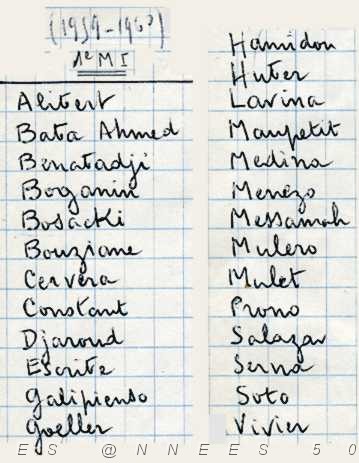 (1959-1960)
1e M I
Alibert
Bata Ahmed
Benatadji
Borganin
Bosacki
Bouziane
Cervera
Constant
Djaroud
Escrite
Galipienso
Goeller
Hamidou
Huter
Lavina
Maupetit
Medina
Menezo
Messamah
Mulero
Mulet
Prono
Salazar
Serna
Soto
Vivier
ES @NNEES 50